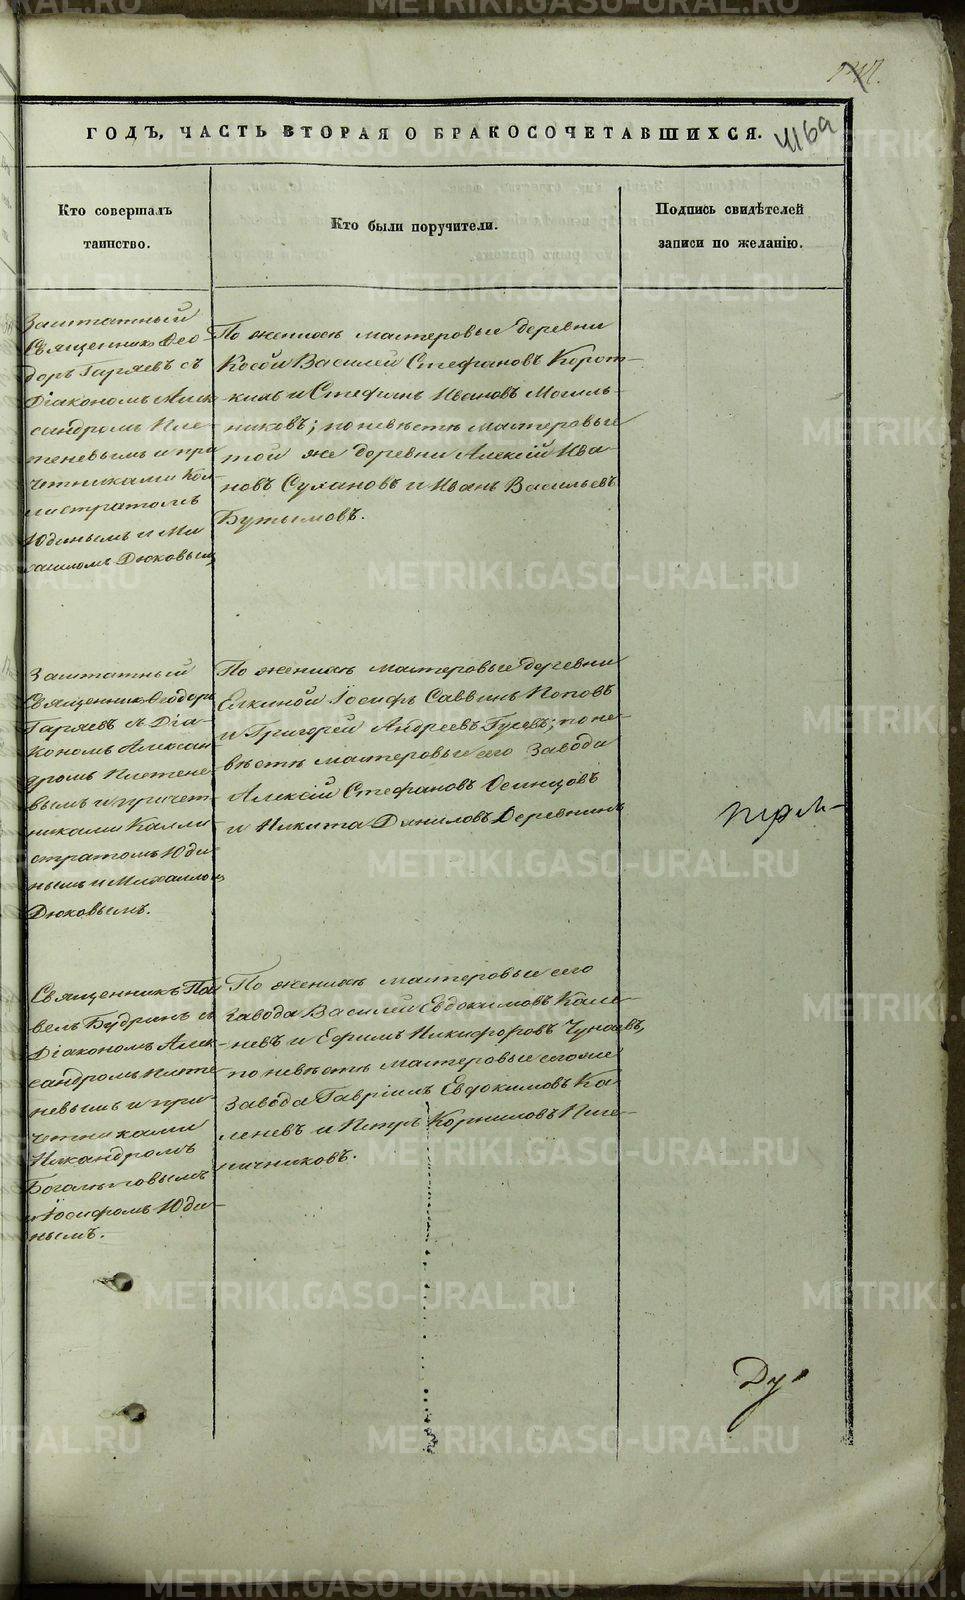 ГОДЪ, ЧАСТЬ ВТОРАЯ О БРАКОСОЧЕТАВШИХСЯ.
Кто совершалъ
таинство.
Кто были поручители.
Подпись свидѣтелей
записи по желанію.
Заштатный
Священникъ Ѳео-
доръ Гаряевъ съ
Діакономъ Алек
сандромъ Пле-
теневымъ и при
четниками Кал-
листратомъ
Юдинымъ и Ми
хаиломъ Дюковымъ
По женихѣ мастеровые деревни
Косой Василей Стефановъ Корот-
кихъ и Стефанъ Ивановъ Могиль-
никовъ; по невѣстѣ мастеровые
той же деревни Алексѣй Ива
новъ Сулановъ и Иванъ Васильевъ
Бутымовъ.
Заштатный
Священникъ Ѳеодоръ
Гаряевъ съ Діа-
кономъ Алексан
дромъ Плетене
вымъ и причет
никами Калли
стратомъ Юди
нымъ и Михаиломъ
Дюковымъ.
По женихѣ мастеровые деревни
Елкиной Іосифъ Саввинъ Поповъ
и Григорей Андреевъ Гусевъ; по не-
вѣстѣ мастеровые сего Завода
Алексій Стефановъ Осинцовъ
и Никита Даниловъ Деревнинъ
Священникъ Па
велъ Будринъ съ
Діакономъ Алек-
сандромъ Плете
невымъ и при
четниками
Никандромъ
Богатыровымъ
и Іосифомъ Юди-
нымъ.
По женихѣ мастеровые сего
Завода Василей Евдокимовъ Кале-
невъ и Ефимъ Никифоровъ Чунаевъ,
по невѣстѣ мастеровые сегоже
Завода Гавріилъ Евдокимовъ Ка
леневъ и Петръ Корниловъ Пше-
ничниковъ.
METRIKI.GASO-URAL.RU